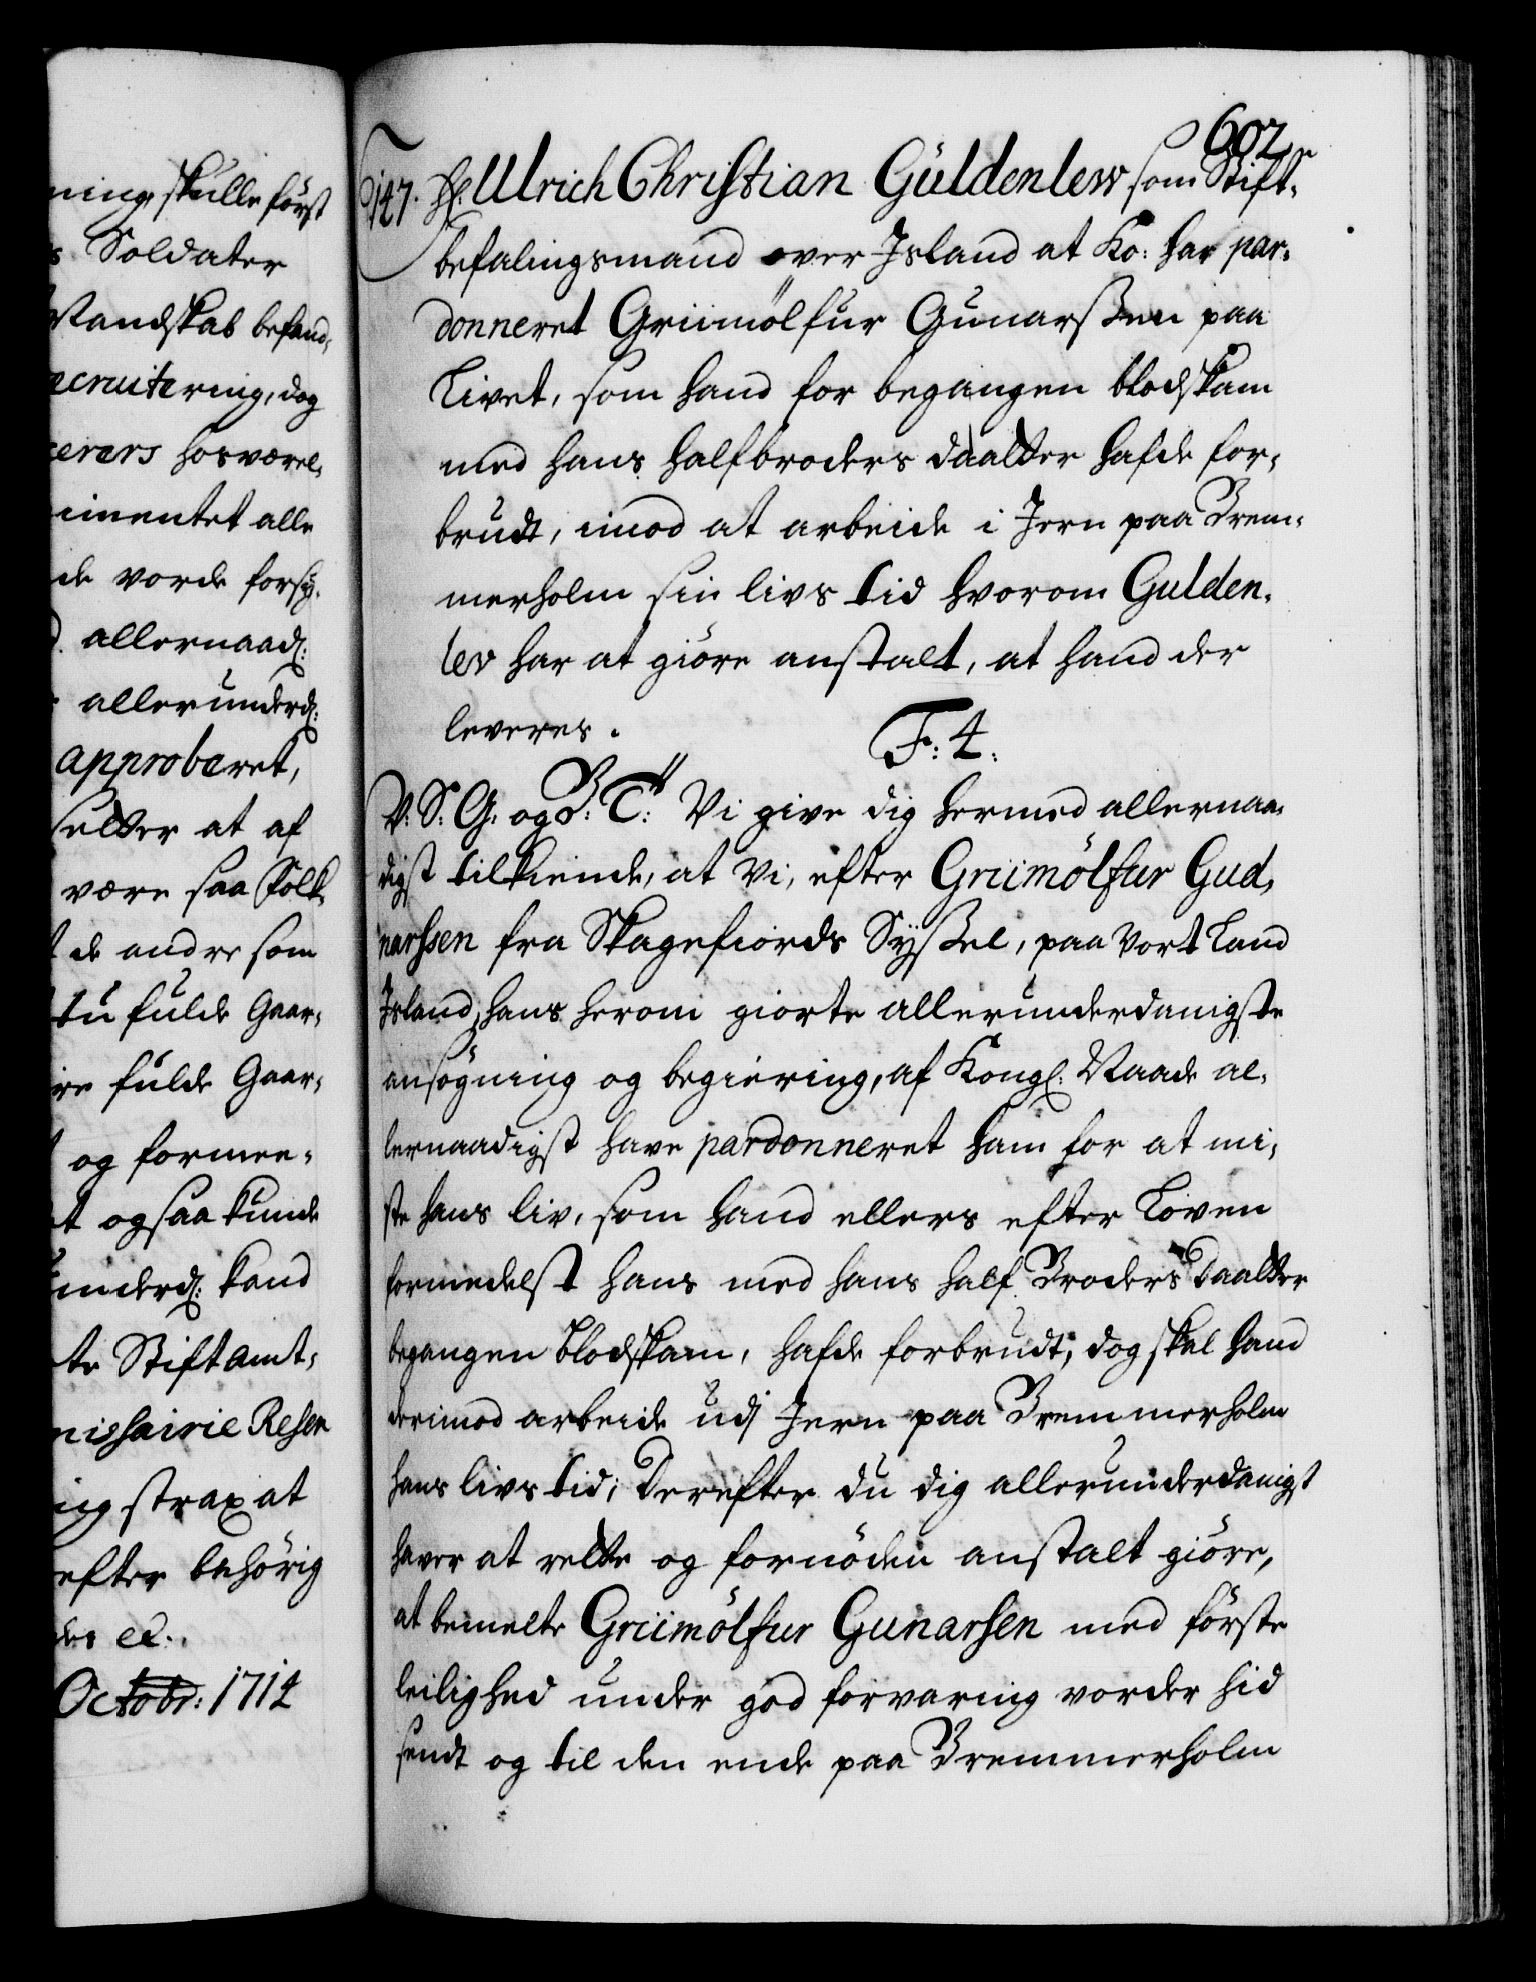 ning, skulle först
s Soldater
Mandskab befand,
ecruitering, dog
cerers hosværel,
imentet alle
de vorde forsÿ,
allernaad:
allerunderd:
approberet,
selter at af
være saa Folk
t de andre som
tu fulde Gaar,
ire fulde Gaar,
og formee,
t ogsaa kunde
underd: kand
te Stiftamt,
missairie Resen
ing strax at
efter behörig
des ec:.
Octobr: 1714
602
147. Hr: Ulrich Christian Güldenlew som Stift,
befalingsmand over Island at Ko: har par,
donneret Griimölfur Gunarssen paa
Livet, som hand for begangen blodskam
med hans halfbroders daatter hafde for,
brudt, imod at arbeide i Jern paa Brem,
merholm sin livs tid hvorom Gulden,
lew har at giöre anstalt, at hand der
leveres.
F: 4:
V: S: G: og B: T: Vi give dig hermed allernaa,
digst tilkiende, at Vi, efter Griimölfur Gud,
narssen fra Skagefiords Sÿssel, paa Vort Land
Island, hans herom giorte allerunderdanigste
ansögning og begiering, af Kongl: Naade al,
lernaadigst have pardonneret ham for at mi,
ste hans liv, som hand ellers efter Loven
formedelst hans med hans half Broders Daatter
begangen blodskam, hafde forbrudt, dog skal hand
derimod arbeide udj Jern paa Bremmerholm
hans livs tid; Derefter du dig allerunderdanigst
haver at rette og fornöden anstalt giöre,
at bemelte Griimölfur Gunarsen med förste
leilighed under god forvaring vorder hid
sendt og til den ende paa Bremmerholm